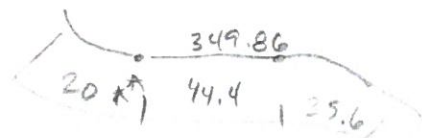 349.86
20 44.4 25.6